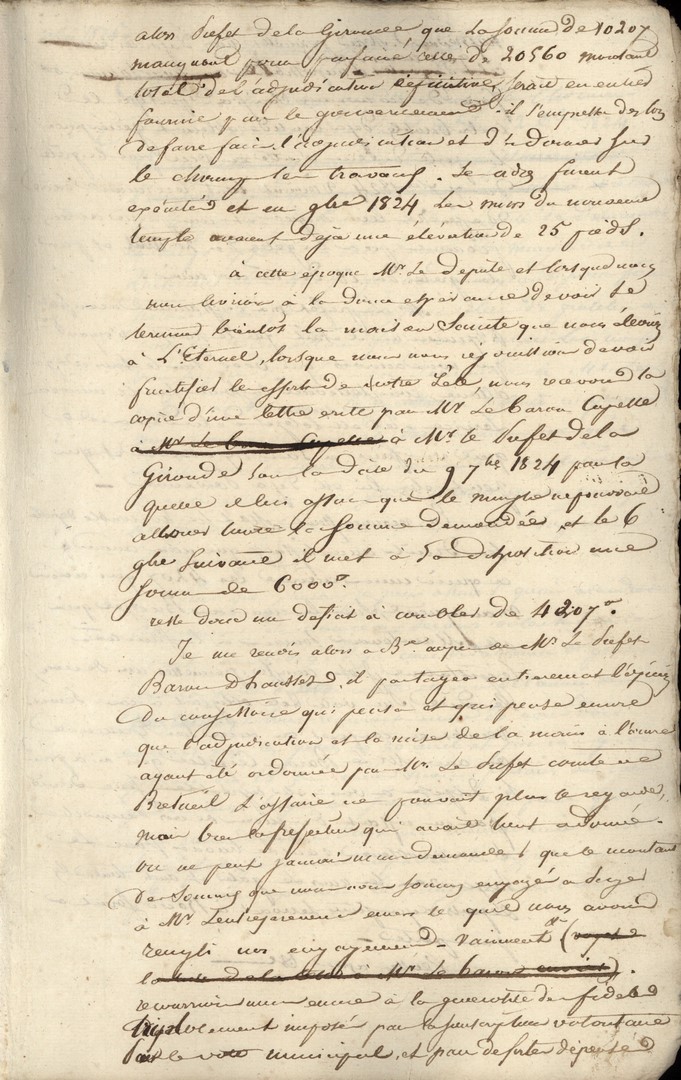 alors Préfet de la Gironde, que la somme de 10207
manquant pour parfaire celle de 20560 montant
total de l'adjudication définitive, serait en entier
fournie par le gouvernement. il s'empressa dès lors
de faire faire l'adjudication et d'ordonner sur
le champ les travaux. Ses ordres furent
exécutés et en 9bre 1824 les murs du nouveau
temple avaient déjà une élévation de 25 pieds.
à cette époque Mr. le député et lorsque nous
nous livrions à la douce espérance de voir se
terminer bientôt la maison Sainte que nous élevons
à L'Eternel, lorsque nous nous réjouissions de voir
fructifier les efforts de votre zèle, nous recevons la
copie d'une lettre écrite par Mr. Le baron Capelle
à Mr. Le baron Capelle à Mr. le Préfet de la
Gironde sous la date du 9 7bre 1824 par la
quelle il lui assure que le ministre ne pouvait
allouer toute la somme demandée, et le 6
9bre suivant il met à sa disposition une
somme de 6000f.
reste donc un déficit à combler de 4207f.
Je me rendis alors à Bx auprès de Mr. Le Préfet
Baron D'haussez, il partagea entièrement l'opinion
du consistoire qui pensa et qui pense encore
que l'adjudication et la mise de la main à l'œuvre
ayant été ordonnée par Mr. Le Préfet comte de
Breteuil l'affaire ne pouvait plus le regarder,
mais bien la préfecture qui avait tout ordonné.
on ne peut jamais nous demander que le montant
des sommes que nous nous sommes engagés à payer
à Mr. L'entrepreneur envers lequel nous avons
rempli nos engagements. Vainement (
la de la à Mr. Le baron).
recourrions nous encore à la générosité des fidèles
triplement imposés par la souscription volontaire
par le vote municipal, et par de fortes dépenses